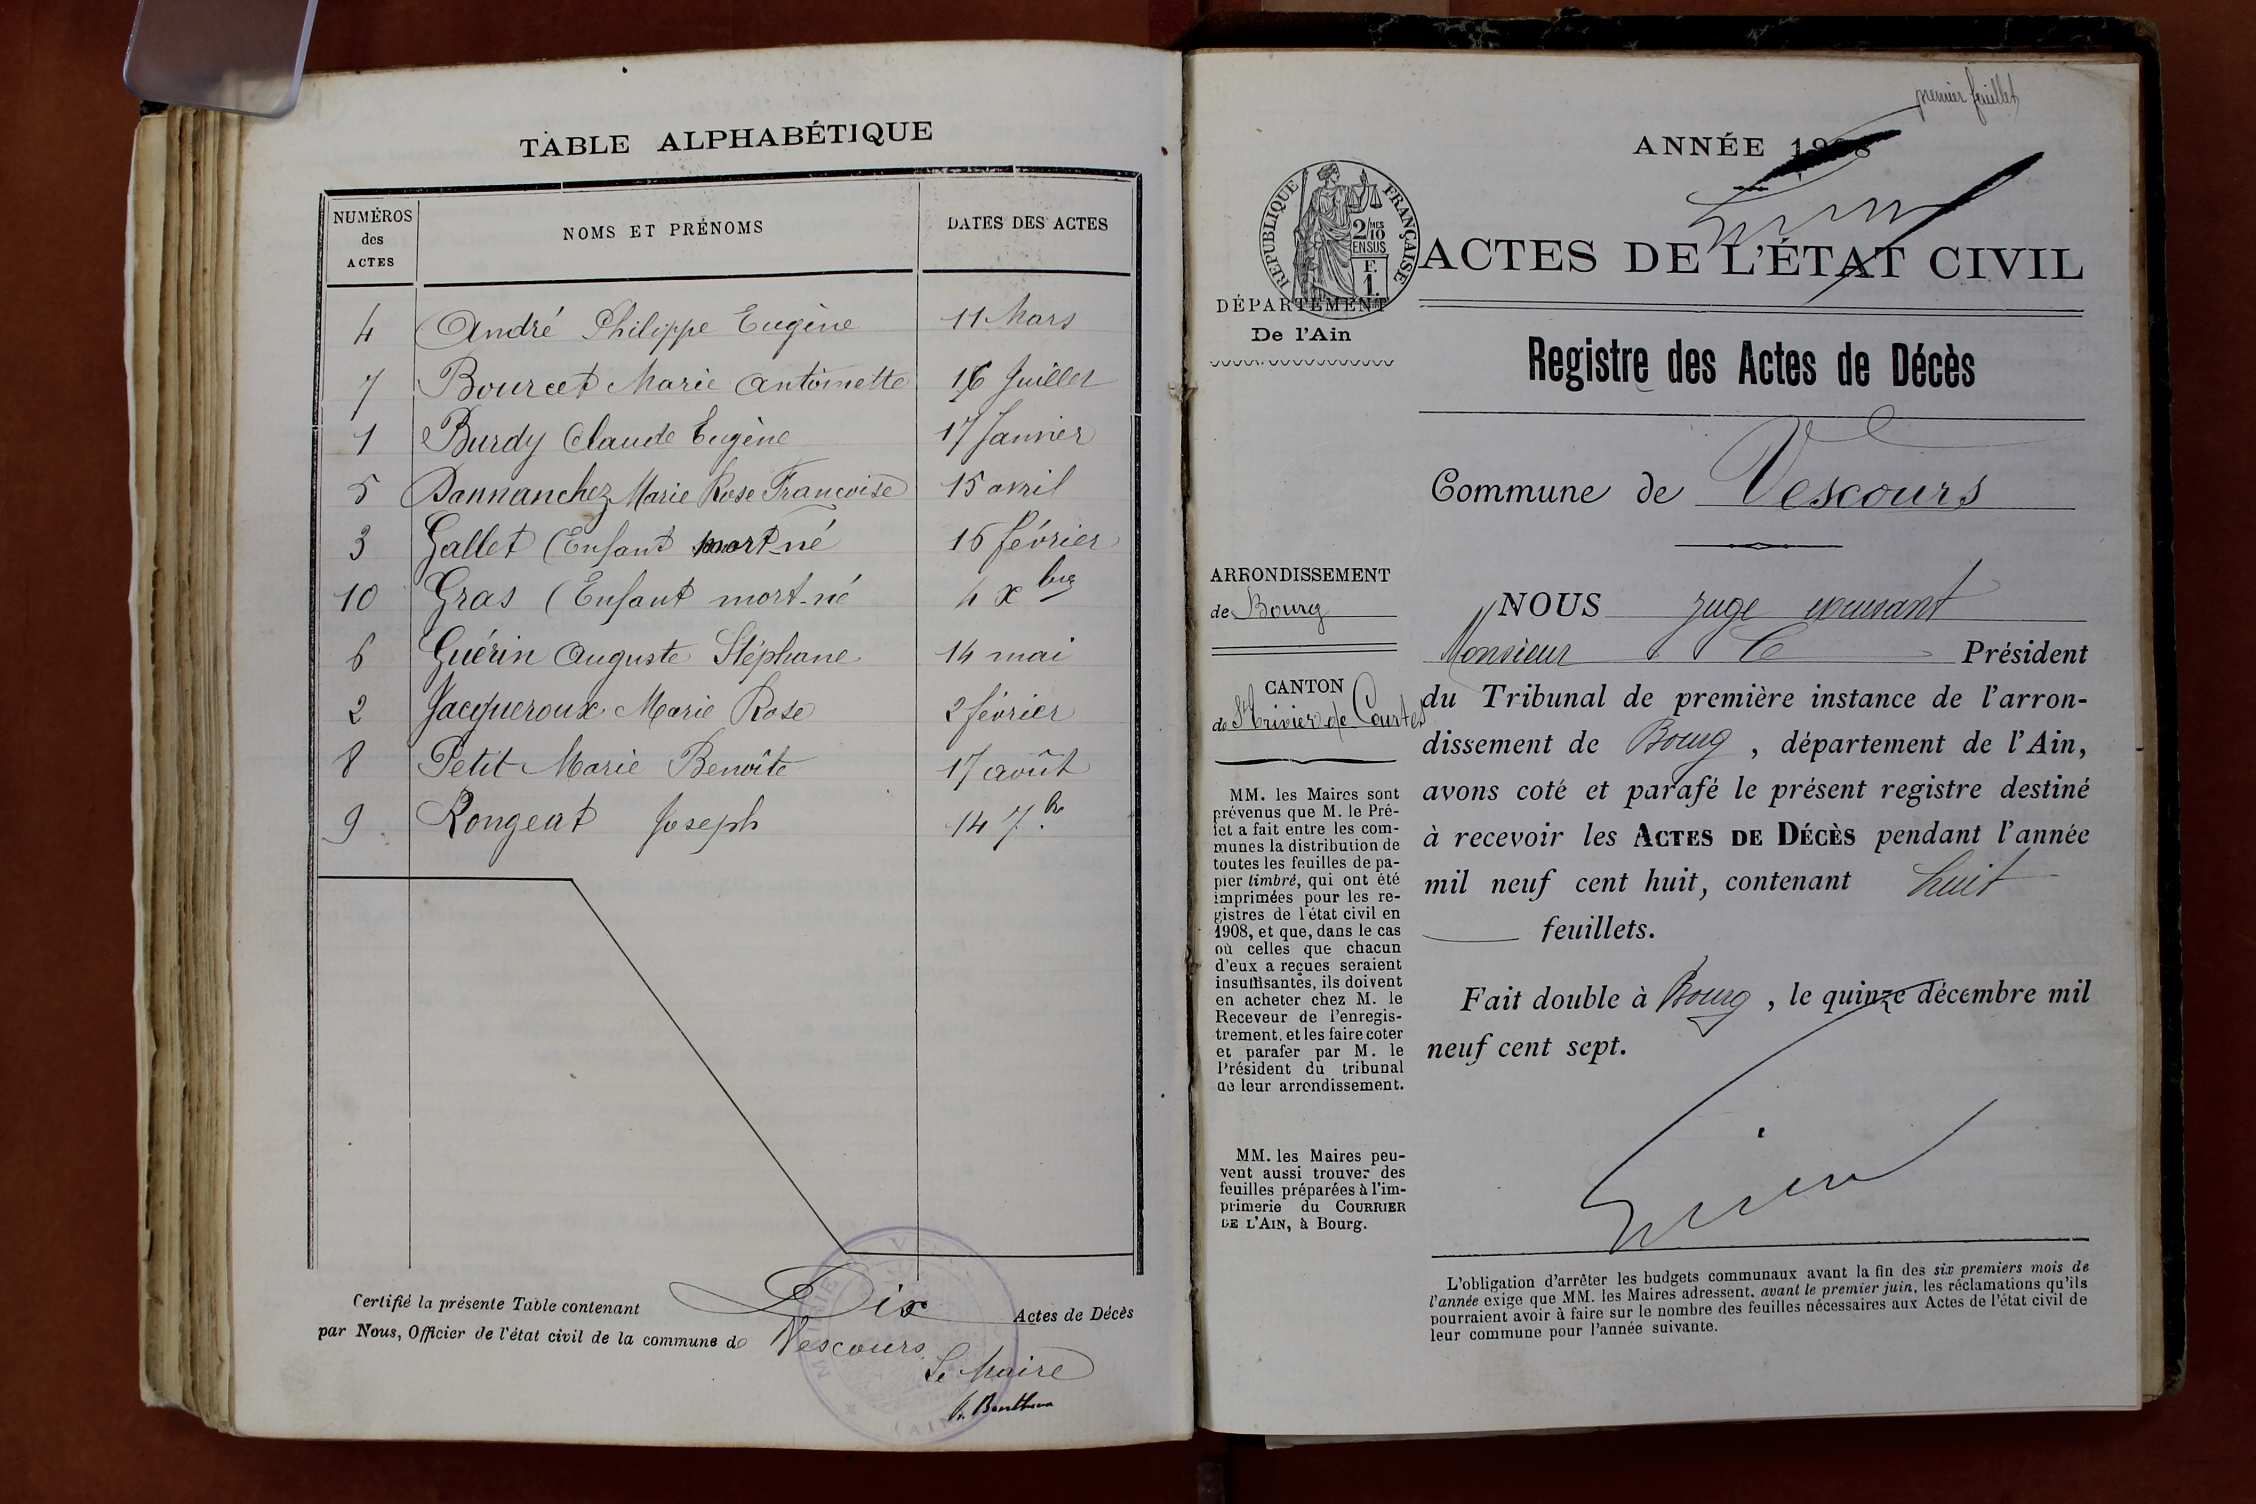 TABLE ALPHABÉTIQUE
NUMÉROS des ACTES
NOMS ET PRÉNOMS
DATES DES ACTES
4 André Philippe Eugène 11 Mars
7 Bourcet Marie Antoinette 16 Juillet
1 Burdy Claude Eugène 17 Janvier
5 Dannanchez Marie Rose Francoise 15 avril
3 Gallet (Enfant mort-né 15 février
10 Gras (Enfant mort-né 4 xbre
6 Guérin Auguste Stéphane 14 mai
2 Jacqueroux Marie Rose 2 février
8 Petit Marie Benoîte 17 août
9 Rongeat Joseph 14 7.bre
Certifié la présente Table contenant Dix Actes de Décès
par Nous, Officier de l'état civil de la commune de Vescours
Le Maire
premier feuillet
ANNÉE 1908
RÉPUBLIQUE FRANÇAISE
2/10 MES
EN SUS
F.
1.
ACTES DE L'ÉTAT CIVIL
DÉPARTEMENT
De l'Ain
Registre des Actes de Décès
Commune de Vescours
ARRONDISSEMENT
de Bourg
CANTON
de St Trivier de Courtes
MM. les Maires sont
prévenus que M. le Pré-
fet a fait entre les com-
munes la distribution de
toutes les feuilles de pa-
pier timbré, qui ont été
imprimées pour les re-
gistres de l'état civil en
1908, et que, dans le cas
où celles que chacun
d'eux a reçues seraient
insuffisantes, ils doivent
en acheter chez M. le
Receveur de l'enregis-
trement, et les faire coter
et parafer par M. le
Président du tribunal
de leur arrondissement.
MM. les Maires peu-
vent aussi trouver des
feuilles préparées à l'im-
primerie du COURRIER
DE L'AIN, à Bourg.
NOUS juge
Monsieur le Président
du Tribunal de première instance de l'arron-
dissement de Bourg, département de l'Ain,
avons coté et parafé le présent registre destiné
à recevoir les ACTES DE DÉCÈS pendant l'année
mil neuf cent huit, contenant huit
feuillets.
Fait double à Bourg, le quinze décembre mil
neuf cent sept.
L'obligation d'arrêter les budgets communaux avant la fin des six premiers mois de
l'année exige que MM. les Maires adressent, avant le premier juin, les réclamations qu'ils
pourraient avoir à faire sur le nombre des feuilles nécessaires aux Actes de l'état civil de
leur commune pour l'année suivante.